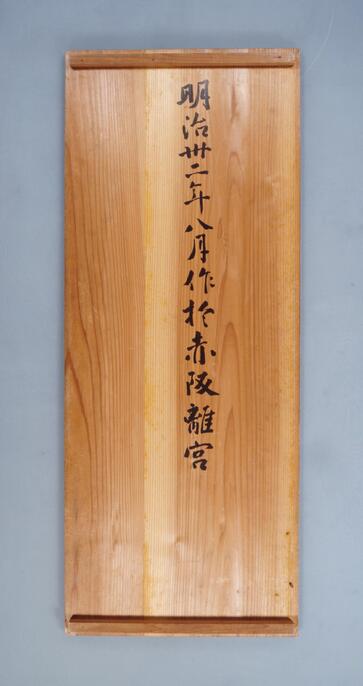 明治卅二年八月作於赤阪離宮